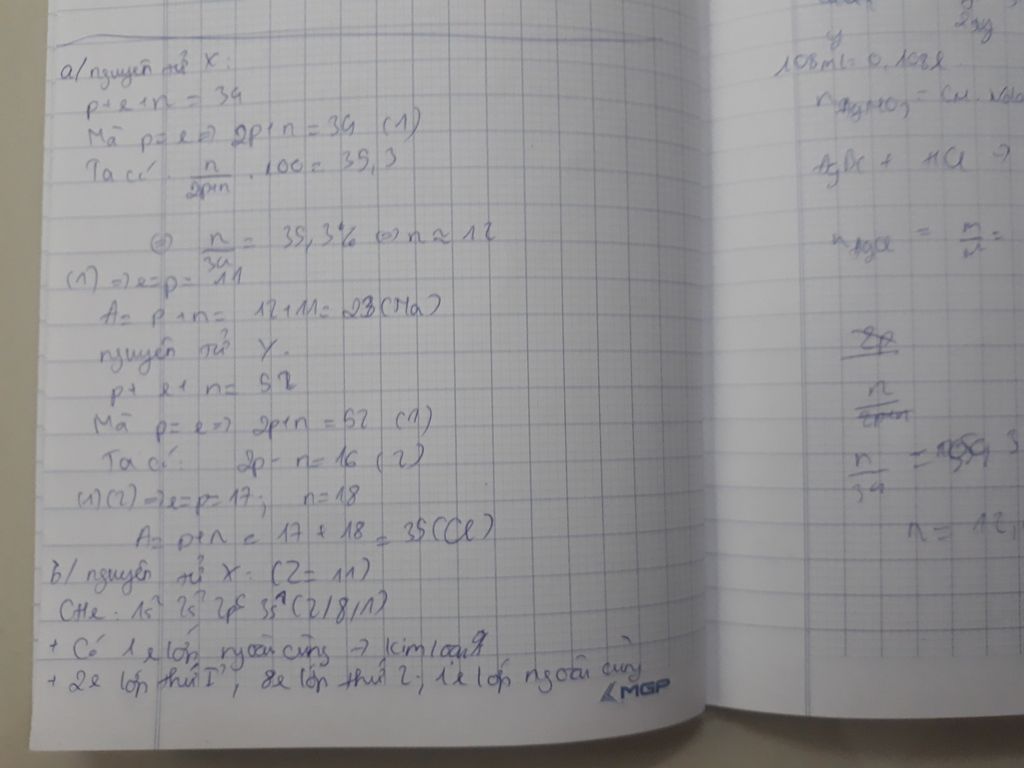 a/ nguyên tử X:
p+e+n = 34
Mà p=e => 2p+n = 34 (1)
Ta có: n/2p+n . 100 = 35,3
<=> n/34 = 35,3% <=> n ≈ 12
(1) => e=p= 11
A= p+n= 12+11= 23 (Na)
nguyên tử Y.
p+ e+ n= 52
Mà p=e=> 2p+n = 52 (1)
Ta có: 2p- n= 16 (2)
(1)(2) => e=p=17; n=18
A= p+n = 17 + 18 = 35(Cl)
b/ nguyên tử X: (Z= 11)
CHe: 1s² 2s² 2p⁶ 3s¹ (2/8/1)
+ Có 1e lớp ngoài cùng → kim loại
+ 2e lớp thứ 1; 8e lớp thứ 2; 1e lớp ngoài cùng
MGP
y
108ml = 0,108l
n AgNO₃ = CM.
+ HCl →
n AgCl = m/M =
2p
n/2p+n
n/34 =
n= 12,